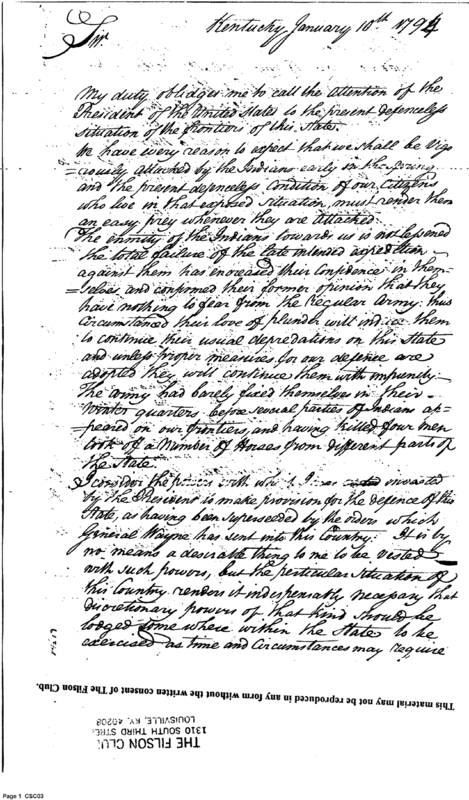 Kentucky January 10th 1794
Sir.
My duty obliges me to call the attention of the
President of the United States to the present defenceless
situation of the frontiers of this State.
We have every reason to expect that we shall be Vigo
=rously attacked by the Indians early in the Spring
and the present defenceless Condition of our Citizens
who live in that exposed situation, must render them
an easy prey whenever they are attacked.
The enmity of the Indians towards us is not lessened
the total failure of the late intended expedition
against them has encreased their Confidence in them-
selves, and confirmed their former opinion that they
have nothing to fear from the Regular Army; thus
Circumstanced their love of plunder will induce them
to continue their usual depredations on this State
and unless proper measures for our defence are
adopted they will continue them with impunity.
The army had barely fixed themselves in their
Winter quarters before several parties of Indians ap-
peared on our frontiers, and having killed four men
took of a Number of Horses from different parts of
the State.
I consider the powers with which I was invested
by the President to make provision for the defence of this
State, as having been superseeded by the orders which
General Wayne has sent into this Country. It is by
no means a desirable thing to me to be Vested
with such powers, but the perticular Situation of
this Country renders it indispensably necessary that
discretionary powers of that kind should be
lodged some where within the State to be
exercised as time and Circumstances may require
This material may not be reproduced in any form without the written consent of The Filson Club.
THE FILSON CLU
1310 SOUTH THIRD STRE
LOUISVILLE, KY. 40208
Page 1 CSC03